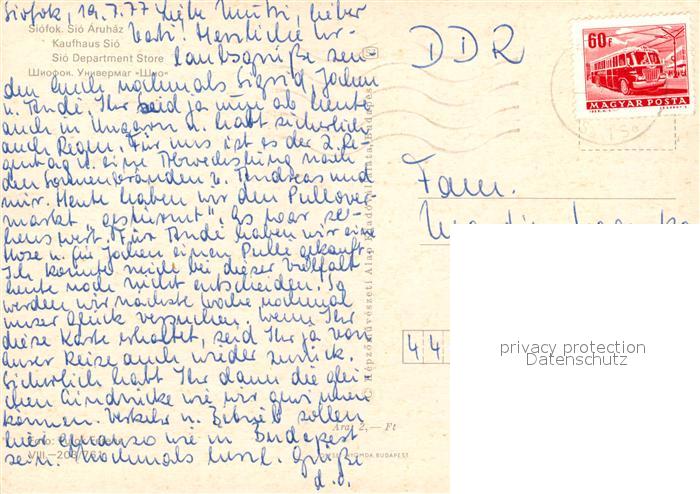 Siófok, 19.7.77 Liebe Mutti, lieber
Vati! Herzliche Ur-
laubsgrüße sen-
den Euch nochmals Sigrid, Jochen
u. André. Ihr seid ja nun ab heute
auch in Ungarn u. habt sicherlich
auch Regen. Für uns ist es der 2. Re-
gentag u. eine Abwechslung nach
den Sonnenbränden v. Andreas und
mir. Heute haben wir den Pullover
markt "gestürmt". Es war se-
henswert. Für André haben wir eine
Hose u. für Jochen einen Pulli gekauft.
Ich konnte mich bei dieser Vielfalt
heute noch nicht entscheiden. So
werden wir nächste Woche nochmal
unser Glück versuchen. Wenn Ihr
diese Karte erhaltet, seid Ihr ja von
eurer Reise auch wieder zurück.
Sicherlich habt Ihr dann die glei-
chen Eindrücke wie wir gewinnen
können. Verkehr u. Betrieb sollen
hier genauso wie in Budapest
sein. Nochmals herzl. Grüße
d. O.
Siófok. Sió Áruház
Kaufhaus Sió
Sió Department Store
Шиофок. Универмаг «Шио»
VIII—203/76
Ára: 2,— Ft
NYOMDA, BUDAPEST
© Képzőművészeti Alap Kiadóvállalata, Budapest
DDR
60f
MAGYAR POSTA
Fam.
44
privacy protection
Datenschutz